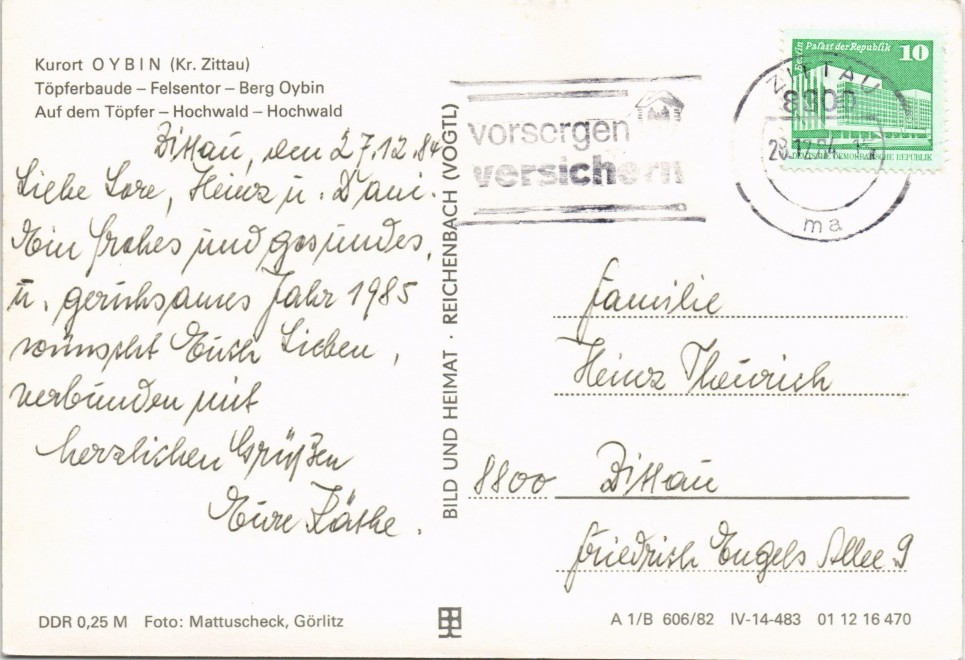 Kurort OYBIN (Kr. Zittau)
Töpferbaude – Felsentor – Berg Oybin
Auf dem Töpfer – Hochwald – Hochwald
Zittau, den 27.12.84
Liebe Lore, Heinz u. Dani.
Ein frohes und gesundes,
u. geruhsames Jahr 1985
wünscht Euch Lieben,
verbunden mit
herzlichen Grüßen
Eure Käthe.
DDR 0,25 M Foto: Mattuscheck, Görlitz
BILD UND HEIMAT · REICHENBACH (VOGTL)
vorsorgen
versichern
Berlin Palast der Republik 10
DEUTSCHE DEMOKRATISCHE REPUBLIK
ZITTAU
8800
28.12.84
ma
Familie
Heinz Theurich
8800 Zittau
Friedrich Engels Allee 9
A 1/B 606/82 IV-14-483 01 12 16 470